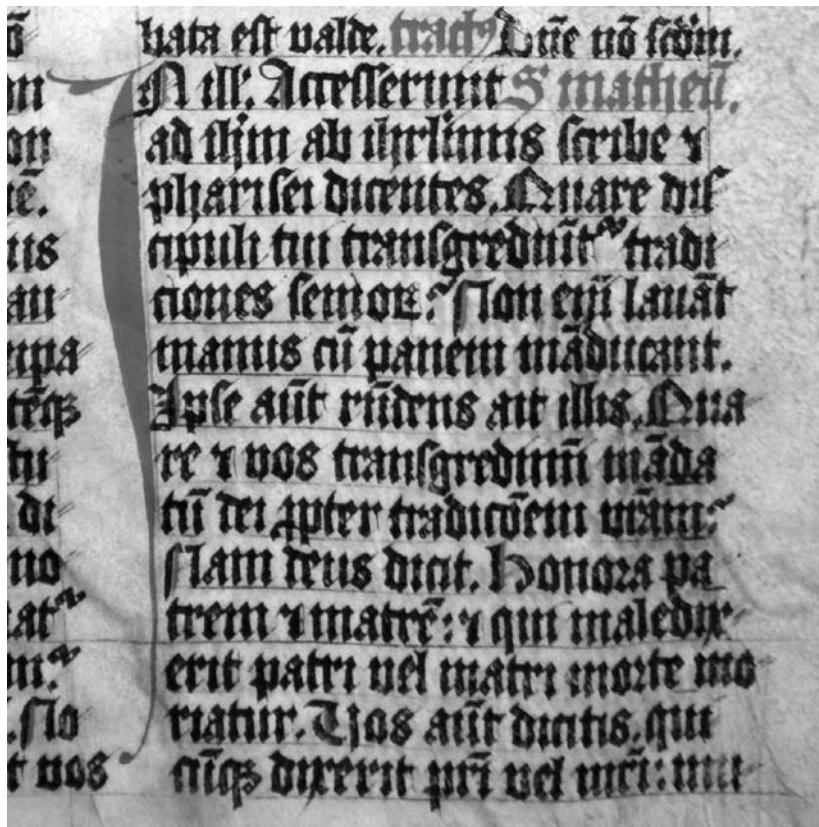 bata est valde. tractꝰ Dn̄e nō scd̄m.
IN ill'. Accesserunt S matheū.
ad ih̄m ab ih̄rlimis scribe ⁊
pharisei dicentes. Quare dis
cipuli tui transgrediūt᷑ tradi
ciones senioꝝ? Non eni̅ lauāt
manus cū panem māducant.
Ipse aūt rn̄dens ait illis. Qua
re ⁊ vos transgredimī māda
tū dei ꝓpter tradicōem vr̄am?
Nam deus dicit. Honora pa
trem ⁊ matrē: ⁊ qui maledix
erit patri vel matri morte mo
riatur. Vos aūt dicitis. qui
cūqꝫ dixerit pr̄i vel mr̄i: mu